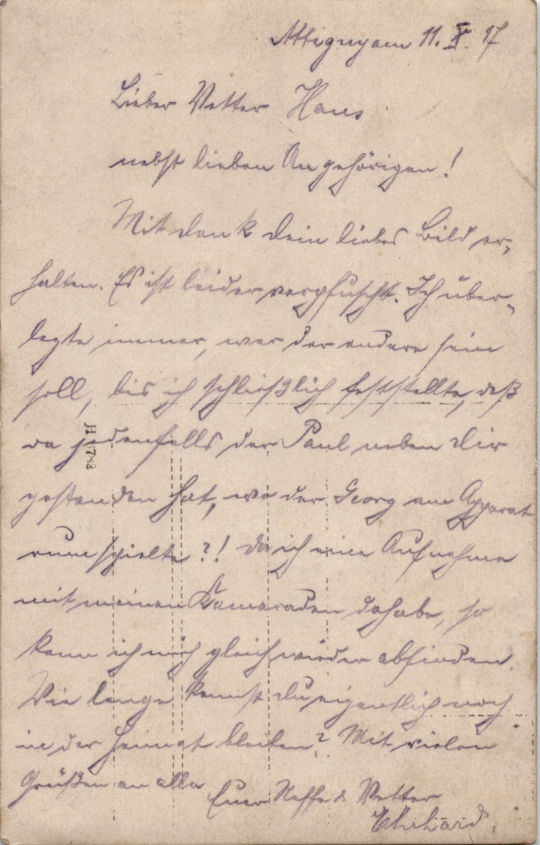 Attigny am 11. X. 17
Lieber Vetter Hans
nebst lieben Angehörigen!
Mit dank dein liebes Bild er-
halten. Es ist leider verpfuscht. Ich über-
legte immer, wer der andere sein
soll, bis ich schließlich feststellte, daß
da jedenfalls der Paul neben Dir
gestanden hat, wo der Georg am Apparat
rum spielte?! Da ich eine Aufnahme
mit meinen Kameraden dahabe, so
kann ich mich gleich wieder abfinden.
Wie lange kannst du eigentlich noch
in der Heimat bleiben? Mit vielen
Grüßen an alle
Euer Neffe & Vetter
Ehrhard.